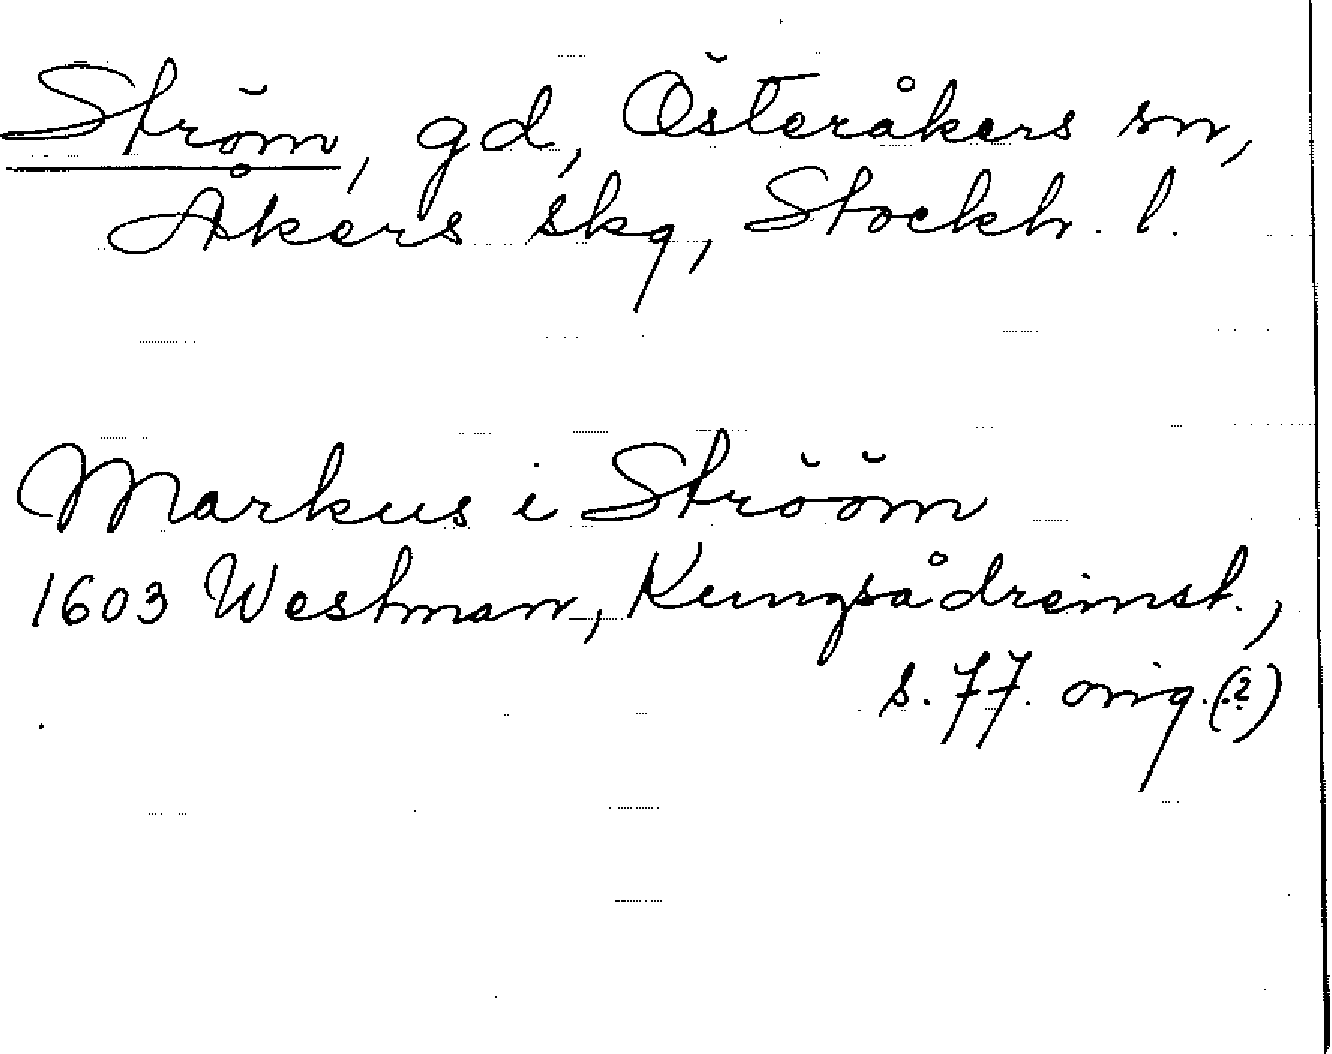 Ström, gd, Österåkers sn,
Åkers skg, Stockh. l.
Markus i Strööm
1603 Westman, Kungsådreinst.,
s. 77. orig. (?)